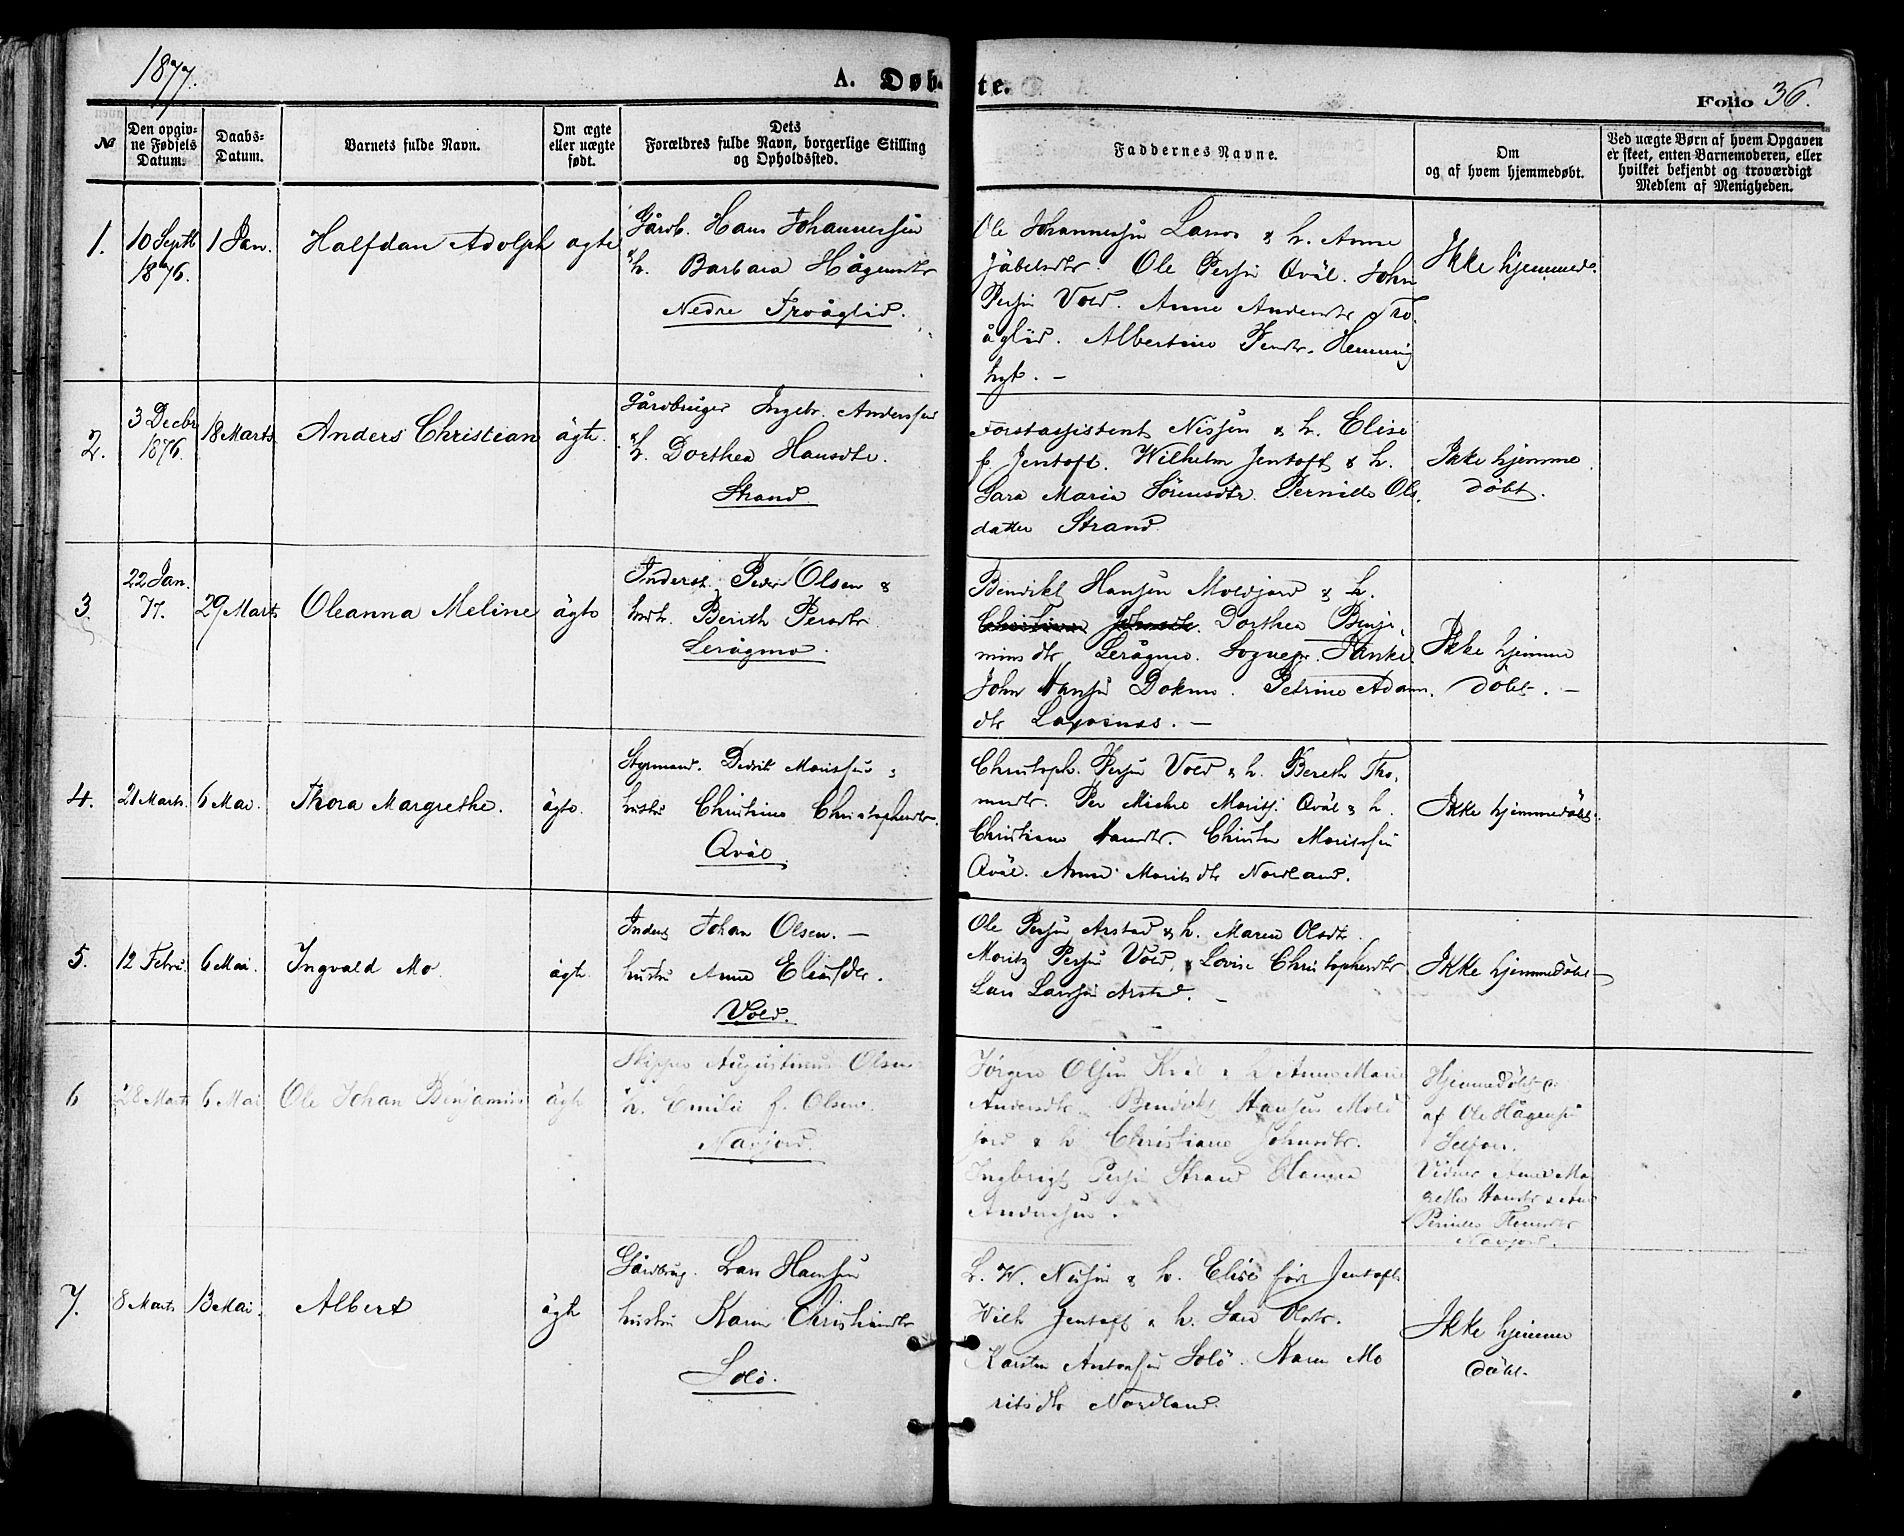 1877.
A. Døbte.
Folio 36.
№
Den opgivne Fødsels Datum.
Daabs-Datum.
Barnets fulde Navn.
Om ægte eller uægte født.
Dets Forældres fulde Navn, borgerlige Stilling og Opholdssted.
Faddernes Navne.
Om og af hvem hjemmedøbt.
Ved uægte Børn af hvem Opgaven er skeet, enten Barnemoderen, eller hvilket bekjendt og troværdigt Medlem af Menigheden.
1.
10 Septb
1876.
1 Jan.
Halfdan Adolph
ægte
Gårdb. Hans Johannessen
& h. Barbara Hågensdtr
Nedre Troåglid.
Ole Johannessen Lanos & h. Anne
Jåbelsdtr. Ole Persen Qväl. John
Persen Vold. Anne Andersdtr Tro-
åglid. Albertine Hemming
hyt. —
Ikke hjemmed.
2.
3 Decbr
1876.
18 Marts
Anders Christian
ägte.
Gårdbruger Ingebr. Anderssen
& h. Dorthea Hansdtr.
Strand.
Forstassistent Nissen & h. Elise
f. Jentoft. Wilhelm Jentoft & h.
Sara Maria Sörensdtr. Pernille Ols
datter Strand.
Ikke hjemme
döbt.
3.
22 Jan.
77.
29 Marts
Oleanna Meline
ägte
Inderst. Peder Olsen &
hustr. Berith Persdtr
Lerågmo.
Bendikt Hansen Moldjord & h.
Christiane Johnsdtr. Dorthea Benja-
minsdtr Lerågmo. Sognepr. Tanke.
John Hansen Dokmo. Petrine Adam
dtr Laxosnes. —
Ikke hjemme
döbt. —
4.
21 Marts
6 Mai.
Thora Margrethe.
ägte.
Styrmand. Didrik Moritssen &
hustru Christine Christophersdtr.
Qväl.
Christoph. Persen Vold & h. Bereth Tho-
masdtr. Per Michal Moritss. Qväl & h.
Christiane Hansdtr. Christen Moritssen
Qväl. Anne Moritsdtr Nordland.
Ikke hjemmedöbt.
5.
12 Febru.
6 Mai.
Ingvald Mo.
ägte
Inderst Johan Olsen. —
hustru Anne Eliasdtr.
Vold.
Ole Persen Arstad & h. Maren Olsdtr.
Moritz Persen Vold, & Lovise Christophersdtr
Lars Larssen Arstad. —
Ikke hjemmedöbt
6
28 Marts
6 Mai
Ole Johan Benjamin
ägte
Skipper Augustinus Olsen
& h. Emilie f. Olsen.
Navjord.
Jörgen Olsen & h Anne Marie
Andersdtr. Bendikt Hansen Mold
jord & h Christiane Johnsdtr.
Ingbrigt Persen Strand Hanna
Anderssen.
Hjemmedöbt
af Ole Hågensen
Vidner Anne Ma
grethe Hansdtr & Ane
Pernille
Navjord.
7.
8 Marts
13 Mai.
Albert
ägte
Gårdbrug. Lars Hansen
hustru Karen Christiansdtr
Solö.
L. W. Nissen & h. Elise föd Jentoft.
Wilh Jentoft & h. Sara Olsdtr.
Karsten Antonsen Solö. Karen Mo
ritsdtr Nordland.
Ikke hjemme
döbt.